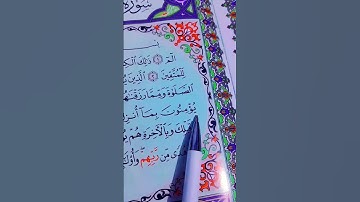 سورة
الٓمٓ ١ ذَٰلِكَ ٱلْكِ
لِّلْمُتَّقِينَ ٢ ٱلَّذِينَ
ٱلصَّلَوٰةَ وَمِمَّا رَزَقْنَٰهُ
يُؤْمِنُونَ بِمَآ أُنزِلَ
وَبِٱلْءَاخِرَةِ هُمْ
مِّن رَّبِّهِمْ وَأُو۟لَٰ